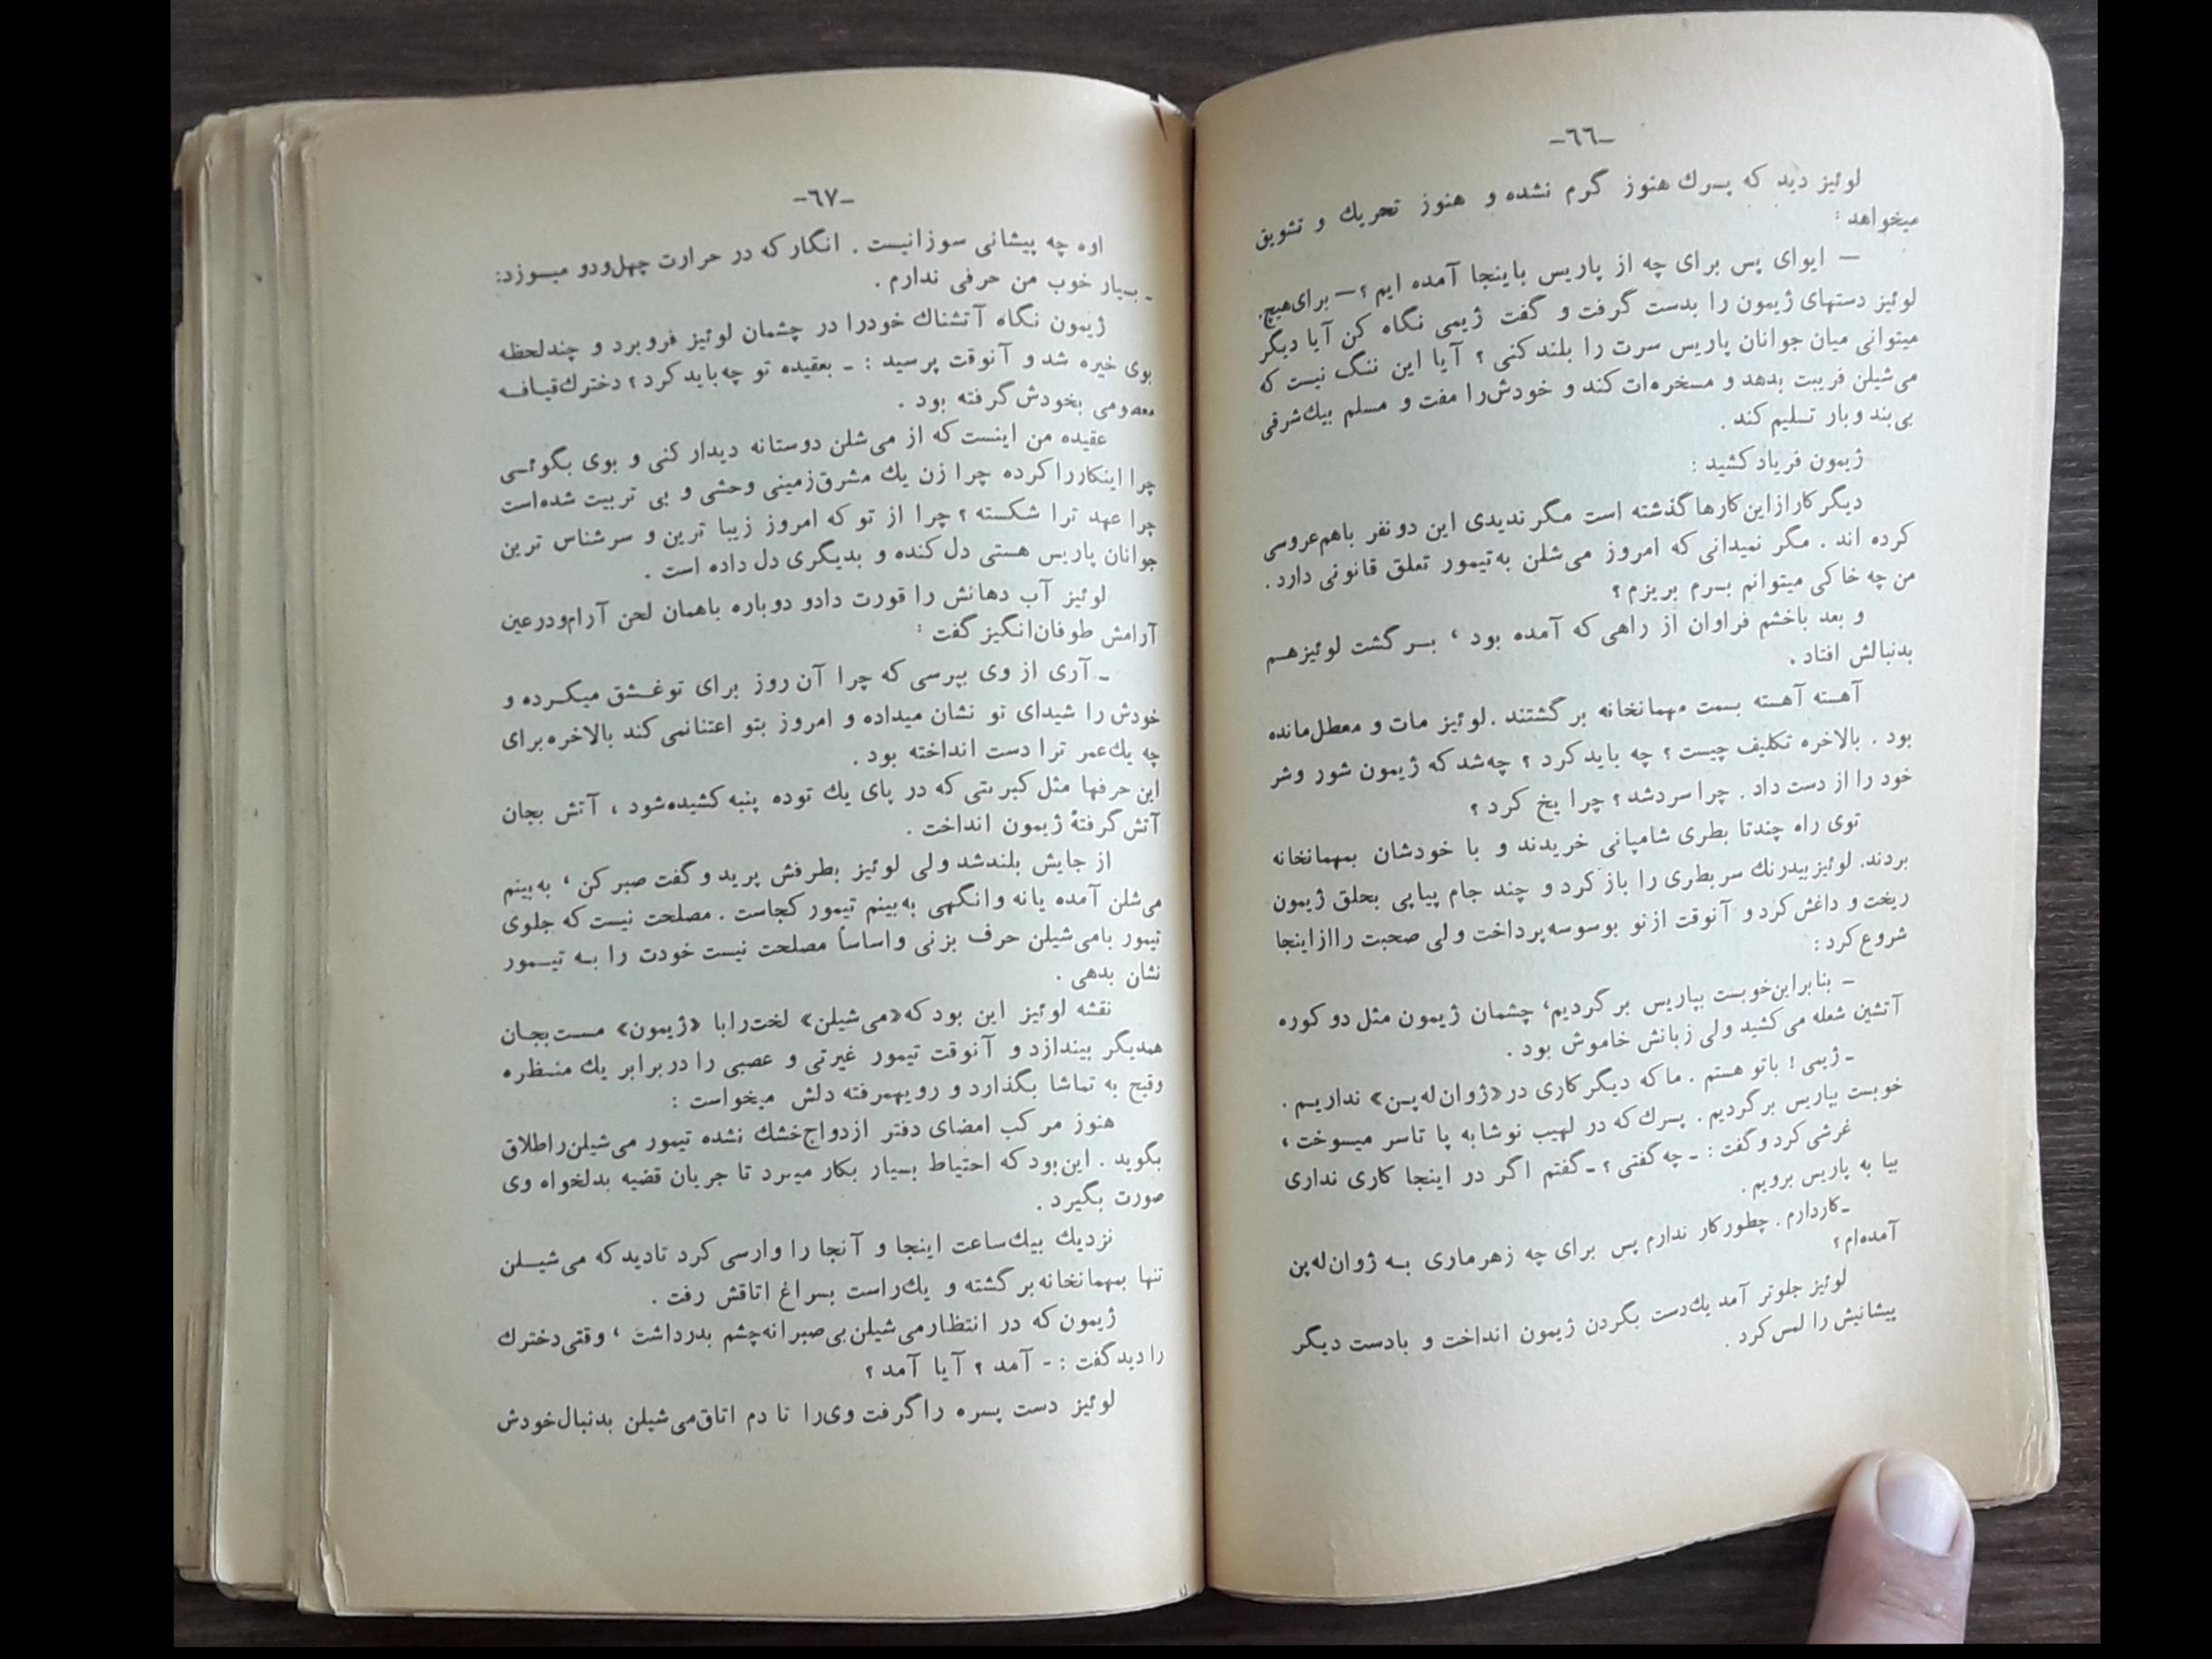 -٦٦-
لوئیز دید که پسرك هنوز گرم نشده و هنوز تحریك و تشویق
میخواهد :
— ایوای پس برای چه از پاریس باینجا آمده ایم ؟ — برای هیچ.
لوئیز دستهای ژیمون را بدست گرفت و گفت ژیمی نگاه کن آیا دیگر
میتوانی میان جوانان پاریس سرت را بلند کنی ؟ آیا این ننگ نیست که
می‌شیلن فریبت بدهد و مسخره‌ات کند و خودش را مفت و مسلم بیك شرقی
بی‌بند و بار تسلیم کند .
ژیمون فریاد کشید :
دیگر کار از این کارها گذشته است مگر ندیدی این دو نفر باهم عروسی
کرده اند . مگر نمیدانی که امروز می‌شلن به تیمور تعلق قانونی دارد .
من چه خاکی میتوانم بسرم بریزم ؟
و بعد باخشم فراوان از راهی که آمده بود ، بـر گشت لوئیزهـم
بدنبالش افتاد .
آهسته آهسته بسمت مهمانخانه بر گشتند . لوئیز مات و معطل‌مانده
بود . بالاخره تکلیف چیست ؟ چه باید کرد ؟ چه‌شد که ژیمون شور وشر
خود را از دست داد . چرا سردشد ؟ چرا یخ کرد ؟
توی راه چندتا بطری شامپانی خریدند و با خودشان بمهمانخانه
بردند. لوئیز بیدرنك سر بطری را باز کرد و چند جام پیاپی بحلق ژیمون
ریخت و داغش کرد و آنوقت ازنو بوسوسه پرداخت ولی صحبت را از اینجا
شروع کرد :
– بنابراین خوبست بپاریس بر گردیم، چشمان ژیمون مثل دو کوره
آتشین شعله می‌کشید ولی زبانش خاموش بود .
– ژیمی ! باتو هستم . ما که دیگر کاری در «ژوان له پـن» نداریـم .
خوبست بپاریس بر گردیم . پسرك که در لهیب نوشابه پا تاسر میسوخت ،
غرشی کرد و گفت : – چه گفتی ؟ – گفتم اگر در اینجا کاری نداری
بیا به پاریس برویم .
– کاردارم . چطور کار ندارم پس برای چه زهرماری بـه ژوان‌له‌پن
آمده‌ام ؟
لوئیز جلوتر آمد یك‌دست بگردن ژیمون انداخت و بادست دیگر
پیشانیش را لمس کرد .
-٦٧-
اوه چه پیشانی سوزانیست . انگار که در حرارت چهل‌ودو میـوزد:
– بسیار خوب من حرفی ندارم .
ژیمون نگاه آتشناك خودرا در چشمان لوئیز فروبرد و چندلحظه
بوی خیره شد و آنوقت پرسید : – بعقیده تو چه باید کرد ؟ دخترك قیـافـه
معصومی بخودش گرفته بود .
عقیده من اینست که از می‌شلن دوستانه دیدار کنی و بوی بگوئـی
چرا اینکار را کرده چرا زن یك مشرق‌زمینی وحشی و بی تربیت شده‌است
چرا عهد ترا شکسته ؟ چرا از تو که امروز زیبا ترین و سرشناس ترین
جوانان پاریس هستی دل کنده و بدیگری دل داده است .
لوئیز آب دهانش را قورت دادو دوباره باهمان لحن آرام‌ودرعین
آرامش طوفان‌انگیز گفت :
– آری از وی بپرسی که چرا آن روز برای توغـشق میکـرده و
خودش را شیدای تو نشان میداده و امروز بتو اعتنانمی کند بالاخره برای
چه یك‌عمر ترا دست انداخته بود .
این حرفها مثل کبریتی که در پای یك توده پنبه کشیده‌شود ، آتش بجان
آتش گرفتهٔ ژیمون انداخت .
از جایش بلندشد ولی لوئیز بطرفش پرید و گفت صبر کن ، به بینم
می‌شلن آمده یانه وانگهی به بینم تیمور کجاست . مصلحت نیست که جلوی
تیمور بامی‌شیلن حرف بزنی واساساً مصلحت نیست خودت را بـه تیـمور
نشان بدهی .
نقشه لوئیز این بود که «می‌شیلن» لخت رابا «ژیمون» مسـت بجـان
همدیگر بیندازد و آنوقت تیمور غیرتی و عصبی را در برابر یك منـظره
وقیح به تماشا بگذارد و رویهمرفته دلش میخواست :
هنوز مرکب امضای دفتر ازدواج خشك نشده تیمور می‌شیلن را طلاق
بگوید . این بود که احتیاط بسیار بکار میبرد تا جریان قضیه بدلخواه وی
صورت بگیرد .
نزدیك بیك‌ساعت اینجا و آنجا را وارسی کرد تادید که می‌شیـلن
تنها بمهمانخانه بر گشته و یك‌راست بسراغ اتاقش رفت .
ژیمون که در انتظار می‌شیلن بی‌صبرانه چشم بدرداشت ، وقتی دخترك
را دید گفت : - آمد ؟ آیا آمد ؟
لوئیز دست پسره را گرفت وی‌را تا دم اتاق می‌شیلن بدنبال خودش